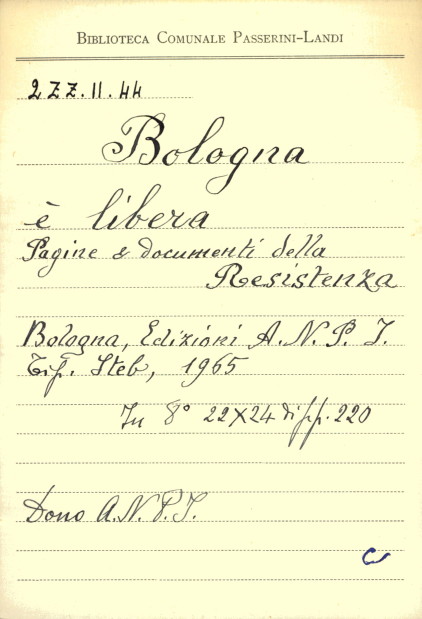 BIBLIOTECA COMUNALE PASSERINI-LANDI
2 ZZ.II.44
Bologna
è libera
Pagine e documenti della
Resistenza
Bologna, Edizioni A.N.P.I.
Tip. Steb, 1965
In 8° 22X24 di pp. 220
Dono A.N.P.I.